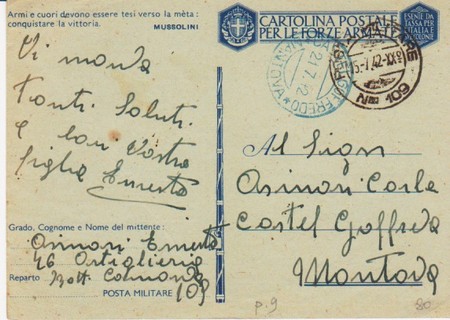 Armi e cuori devono essere tesi verso la mèta:
conquistare la vittoria.
MUSSOLINI
CARTOLINA POSTALE
PER LE FORZE ARMATE
ESENTE DA
TASSA PER
L'ITALIA E
COLONIE
CASTEL GOFFREDO * MANTOVA
21.7.42
MILITARE
15.7.42-XX
Nº 109
Vi manda
Tanti Saluti
e cari Vostro
figlio Ernesto
Al Signor
Asinari Carlo
Castel Goffredo
Mantova
Grado, Cognome e Nome del mittente:
Asinari Ernesto
26 Artiglieria
Reparto Batt Comando
POSTA MILITARE 109
p. 9
80